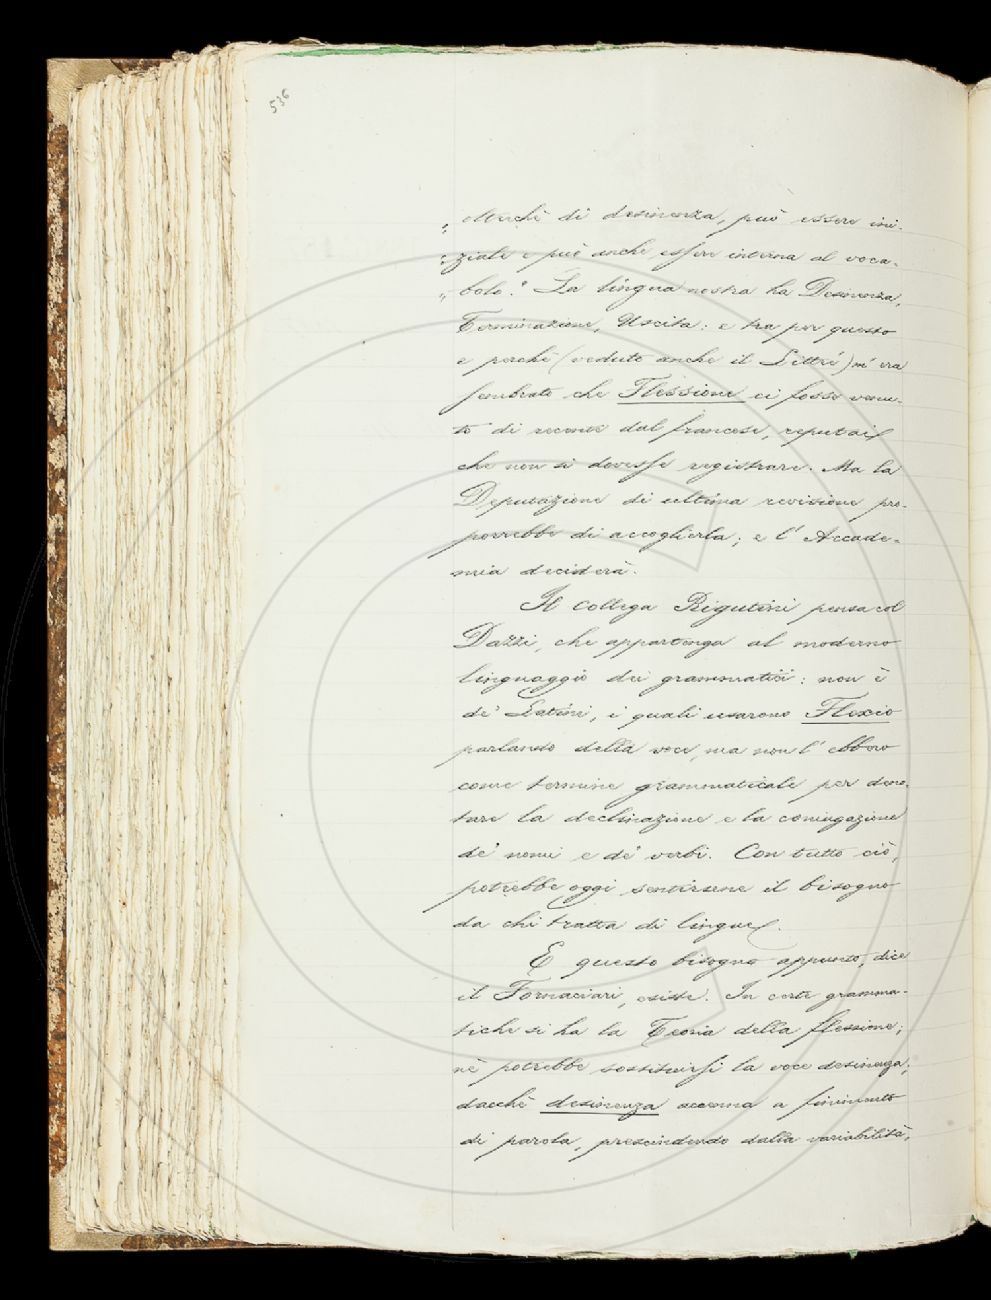 536
„ Merchè di desinenza, può essere ini-
„ ziale e può anche essere interna al voca-
„ bolo." La lingua nostra ha Desinenza,
Terminazione, Uscita: e tra per questo
e perchè (veduto anche il Littré) m'era
sembrato che Flessione ci fosse venu-
to di recente dal francese, reputai
che non si dovesse registrare. Ma la
Deputazione di ultima revisione pro-
porrebbe di accoglierla; e l'Accade-
mia deciderà.
Il collega Rigutini pensa col
Dazzi, che appartenga al moderno
linguaggio dei grammatici: non è
de' Latini, i quali usarono Flexio
parlando della voce, ma non l'ebbero
come termine grammaticale per deno-
tare la declinazione e la coniugazione
de' nomi e de' verbi. Con tutto ciò,
potrebbe oggi sentirsene il bisogno
da chi tratta di lingue.
E questo bisogno appunto, dice
il Fornaciari, esiste. In certe gramma-
tiche si ha la Teoria della flessione;
nè potrebbe sostituirsi la voce desinenza;
dacchè desinenza accenna a finimento
di parola, prescindendo dalla variabilità,